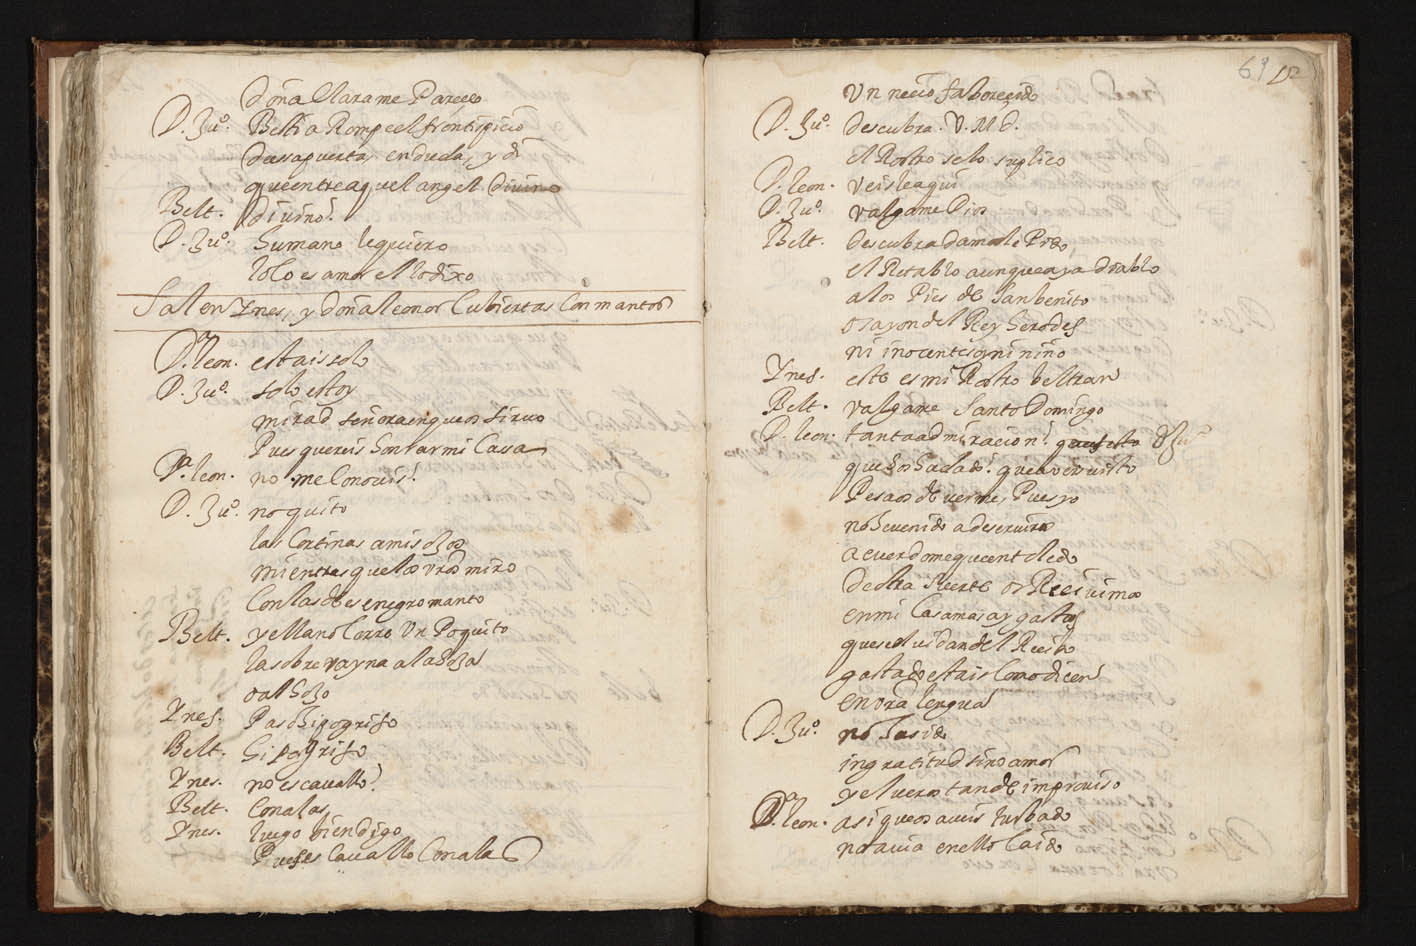 doña Clara me Pareçe
D. Juº. Beltia Rompe el frontispicio
dessa puerta, en duda, y di
que entre aquel angel Divino
Belt. divino!
D. Juº. humano le quiero
loco es amor el lo dixo
Salen Ynes, y doña leonor Cubiertas Con mantos
Dª leon. estais solo
D. Juº. solo estoy
mirad señora en que os sirvo
Pues quereis honrar mi Casa
Dª leon. no me Conoceis!
D. Juº. no quito
las Cortinas a mis ojos
mientras que los vros miro
Con las de ese negro manto
Belt. y ella no Corre Un Poquito
la sobre vayna a la hoja
o al hojo
Ynes. Paso hipogrifo
Belt. hipogrifo
Ynes. no es cavallo!
Belt. Con alas,
Ynes. luego bien digo
Pues es Cavallo Con alas
69 152
Un necio faboreçido
D. Juº. descubra. V. Md.
el Rostro se lo suplico
D. leon. veisle aqui
D. Juº. valgame Dios
Belt. descubra dama le Pido
el Retablo aunque aya diablo
a los Pies de San benito
o sayon del Rey herodes
ni inocentes, y ni niño
Ynes. este es mi Rostro beltran
Belt. valgame Santo Domingo
D. leon. tanta admiracion!
que os ha dado! que aver visto
Pesaos de verme, Pues yo
no he venido a deserviros
acuerdome que en toledo
de otra suerte os Reçivimos
en mi Casa mas ay gastos
que se olvidan del Recibo
gastado estais Como dicen
en vra lengua
D. Juº. no ha sido
ingratitud sino amor
y el veros tan de improviso
Dª. leon. asi que os aveis turbado
no avia en ello Caido